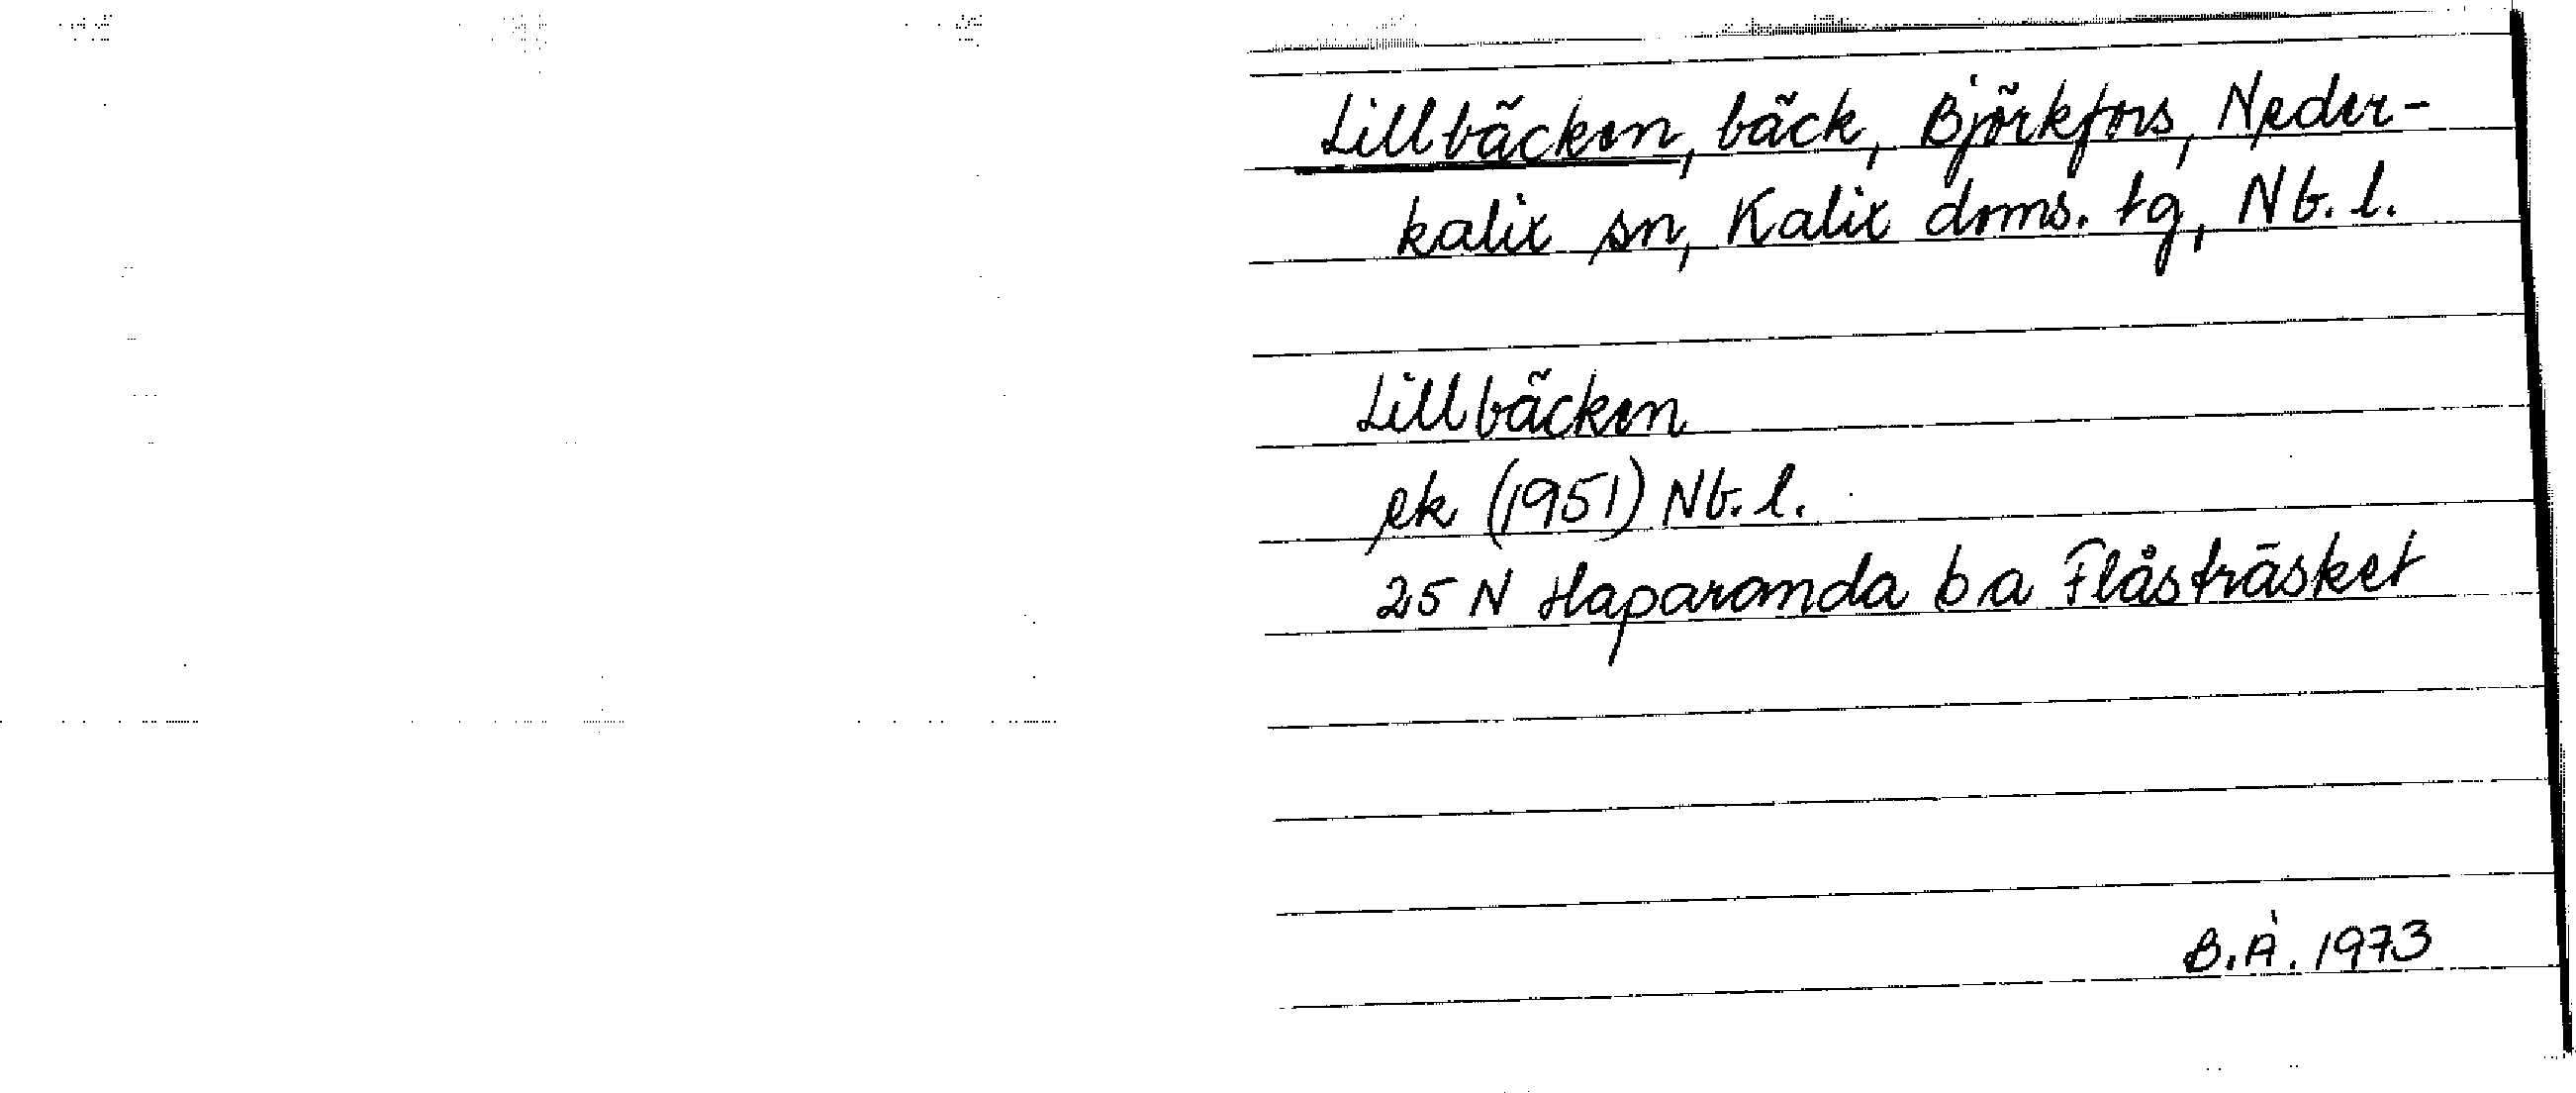 Lillbäcken, bäck, Björkfors, Neder-
kalix sn, Kalix doms. tg, Nb. l.
Lillbäcken
ek (1951) Nb. l.
25 N Haparanda b a Flåsträsket
B.Å. 1973